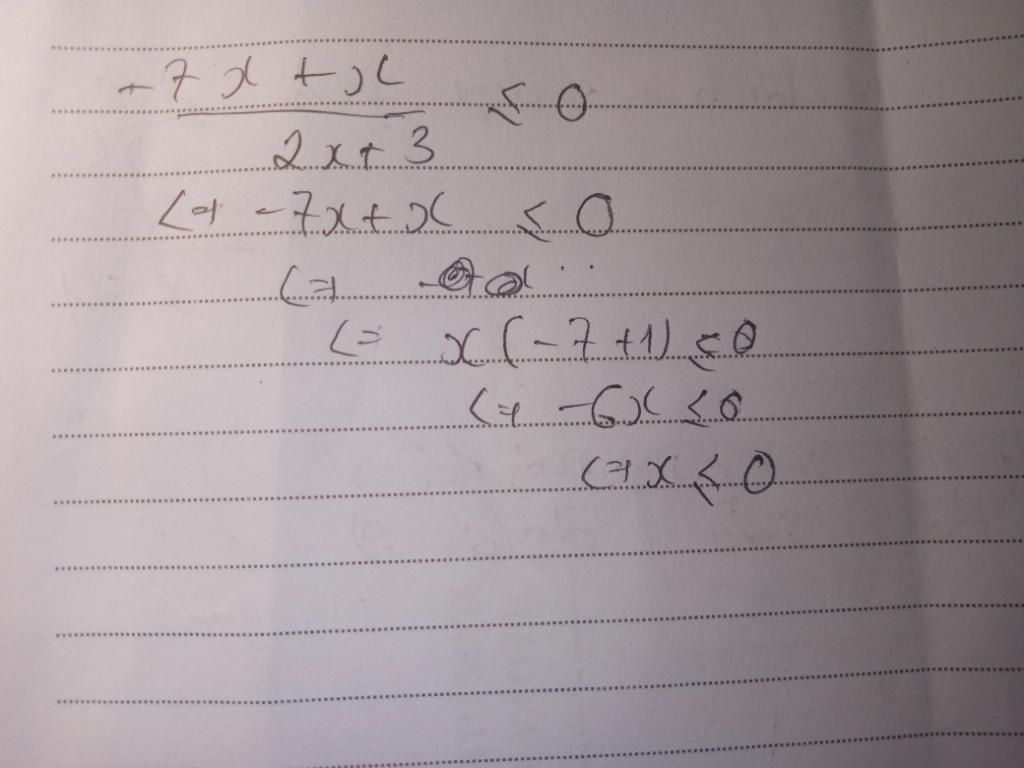 -7x + x
―――― ≤ 0
2x + 3
<=> -7x + x ≤ 0
<=>
<= x(-7+1) ≤ 0
<=> -6x ≤ 0
<=> x ≤ 0